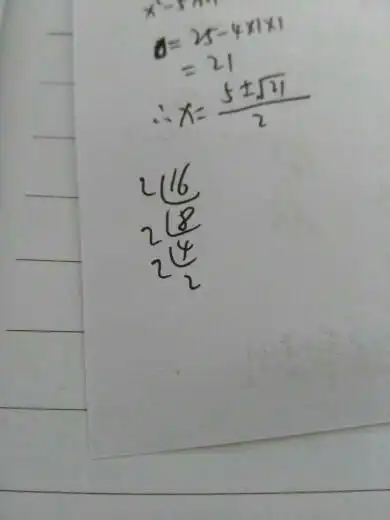 x²-5x+1
Δ= 25-4×1×1
= 21
∴ x= (5±√21)/2
2 16
2 8
2 4
2